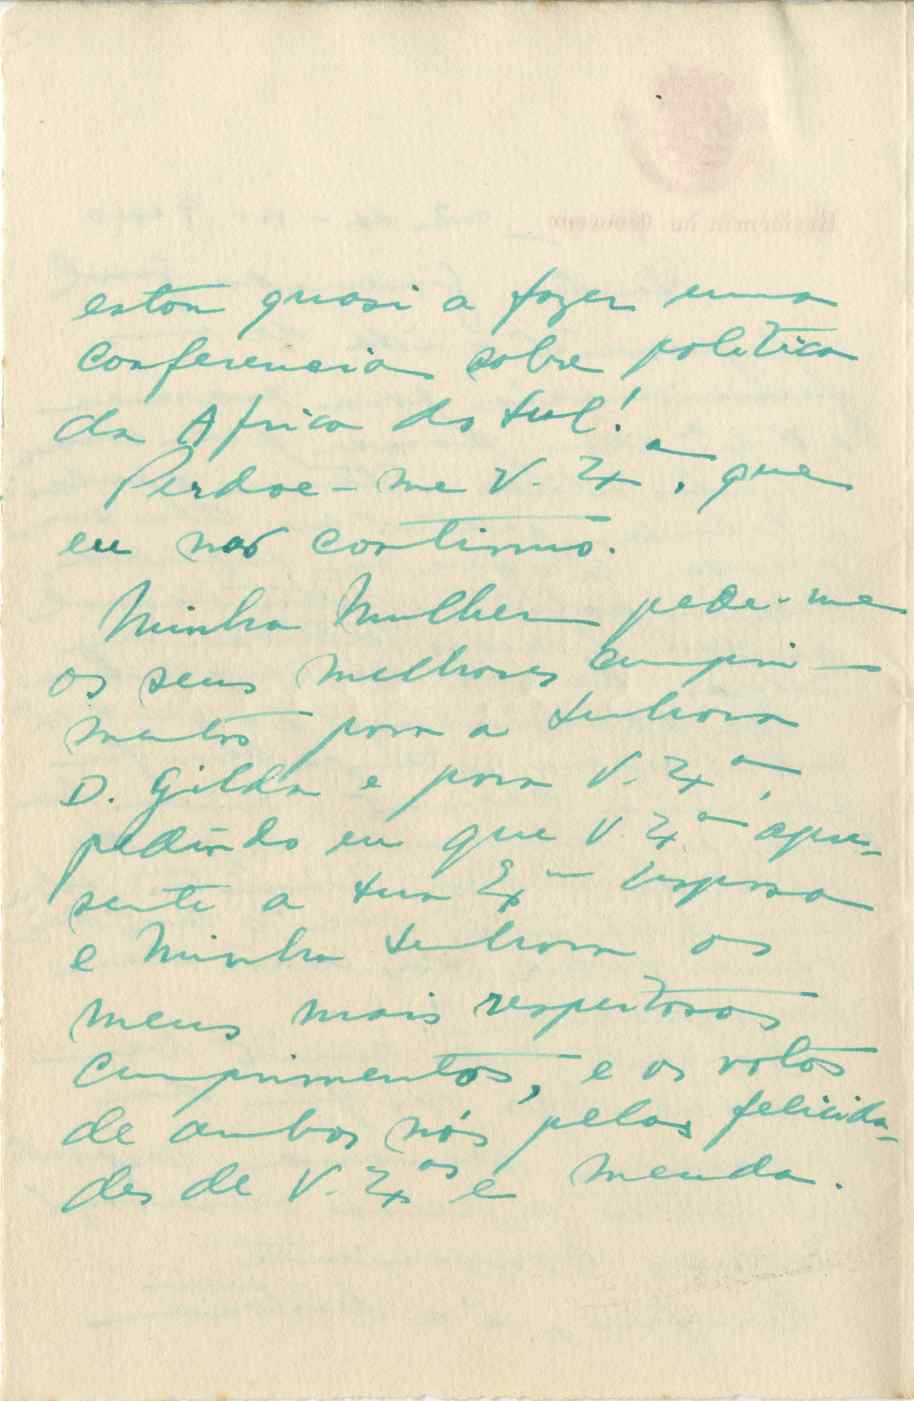 estou quasi a fazer uma
conferencia sobre politica
da Africa do Sul!
Perdoe-me V. Exª, que
eu não continuo.
Minha Mulher pede-me
os seus melhores cumpri-
mentos para a Senhora
D. Gilda e para V. Exª,
pedindo eu que V. Exª apre-
sente a Sua Exma Esposa
e Minha Senhora os
meus mais respeitosos
cumprimentos, e os votos
de ambos nós pelas felicida-
des de V. Exas e